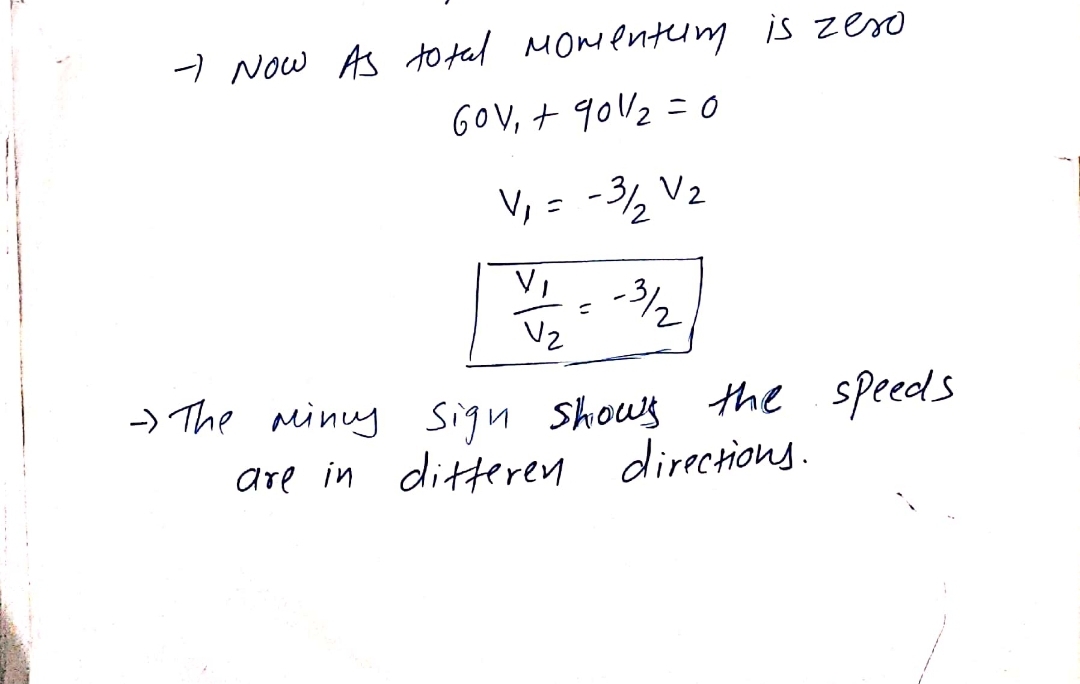 → Now As total Momentum is zero
60V₁ + 90V₂ = 0
V₁ = -3/2 V₂
V₁/V₂ = -3/2
→ The Minus Sign Shows the speeds
are in differen directions.